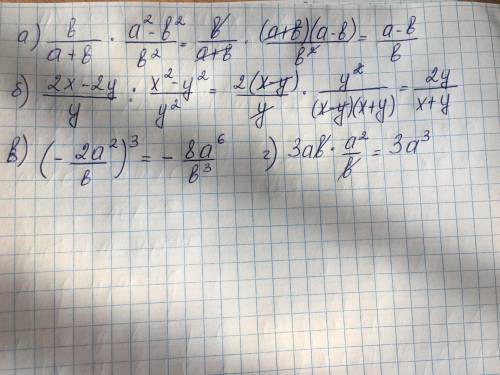 а) в/(a+в) · (a²-в²)/в² = в/(a+в) · ((a+в)(a-в))/в² = (a-в)/в
б) (2x-2y)/y : (x²-y²)/y² = 2(x-y)/y · y²/((x-y)(x+y)) = 2y/(x+y)
в) (-2a²/в)³ = -8a⁶/в³ г) 3aв · a²/в = 3a³